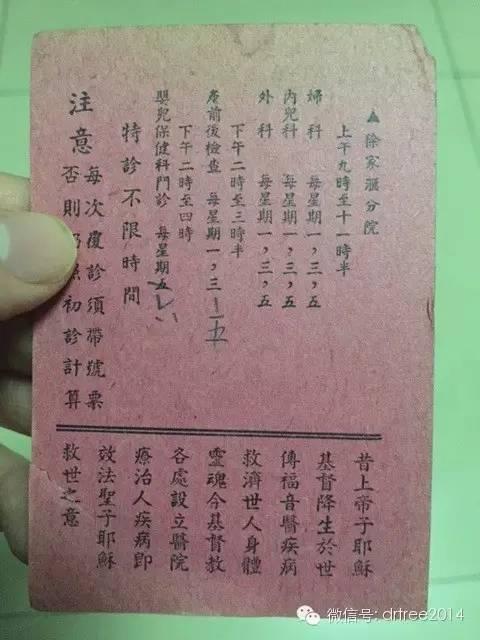 ▲徐家滙分院
上午九時至十一時半
婦科 每星期一,三,五
內兒科 每星期一,三,五
外科 每星期一,三,五
下午二時至三時半
產前後檢查 每星期一,三
下午二時至四時
嬰兒保健科門診 每星期五
特診不限時間
注意 每次覆診須帶號票
否則仍照初診計算
昔上帝子耶穌
基督降生於世
傳福音醫疾病
救濟世人身體
靈魂今基督教
各處設立醫院
療治人疾病即
效法聖子耶穌
救世之意
微信号: drtree2014